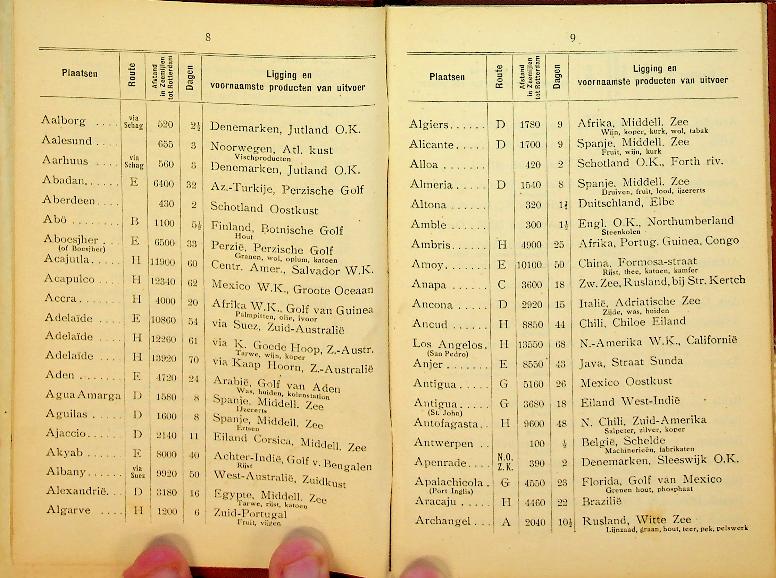 8
Plaatsen Route Afstand in Zeemijlen tot Rotterdam Dagen Ligging en voornaamste producten van uitvoer
Aalborg .... via Schag 520 2½ Denemarken, Jutland O.K.
Aalesund .... 655 3 Noorwegen, Atl. kust
Vischproducten
Aarhuus .... via Schag 560 3 Denemarken, Jutland O.K.
Abadan...... E 6400 32 Az.-Turkije, Perzische Golf
Aberdeen .... 430 2 Schotland Oostkust
Abö ........ B 1100 5½ Finland, Botnische Golf
Hout
Aboesjher .. E 6500 33 Perzië, Perzische Golf
(of Boesjher) Granen, wol, opium, katoen
Acajutla.... H 11900 60 Centr. Amer., Salvador W.K.
Acapulco .... H 12340 62 Mexico W.K., Groote Oceaan
Accra ...... H 4000 20 Afrika W.K., Golf van Guinea
Palmpitten, olie, ivoor
Adelaïde .... E 10860 54 via Suez, Zuid-Australië
Adelaïde .... H 12260 61 via K. Goede Hoop, Z.-Austr.
Tarwe, wijn, koper
Adelaïde .... H 13920 70 via Kaap Hoorn, Z.-Australië
Aden ...... E 4720 24 Arabië, Golf van Aden
Was, huiden, kolenstation
Agua Amarga D 1580 8 Spanje, Middell. Zee
IJzererts
Aguilas .... D 1600 8 Spanje, Middell. Zee
Ertsen
Ajaccio..... D 2140 11 Eiland Corsica, Middell. Zee
Akyab ..... E 8000 40 Achter-Indië, Golf v. Bengalen
Rijst
Albany...... via Suez 9920 50 West-Australië, Zuidkust
Alexandrië... D 3180 16 Egypte, Middell. Zee
Tarwe, rijst, katoen
Algarve .... H 1200 6 Zuid-Portugal
Fruit, vijgen
9
Plaatsen Route Afstand in Zeemijlen tot Rotterdam Dagen Ligging en voornaamste producten van uitvoer
Algiers...... D 1780 9 Afrika, Middell. Zee
Wijn, koper, kurk, wol, tabak
Alicante..... D 1700 9 Spanje, Middell. Zee
Fruit, wijn, kurk
Alloa ...... 420 2 Schotland O.K., Forth riv.
Almeria..... D 1540 8 Spanje, Middell. Zee
Druiven, fruit, lood, ijzererts
Altona ..... 320 Duitschland, Elbe
Amble ..... 300 1½ Engl. O.K., Northumberland
Steenkolen
Ambris ..... H 4900 25 Afrika, Portug. Guinea, Congo
Amoy....... E 10100 50 China, Formosa-straat
Rijst, thee, katoen, kamfer
Anapa ..... C 3600 18 Zw. Zee, Rusland, bij Str. Kertch
Ancona ..... D 2920 15 Italië, Adriatische Zee
Zijde, was, huiden
Ancud ..... H 8850 44 Chili, Chiloe Eiland
Los Angelos. H 13550 68 N.-Amerika W.K., Californië
(San Pedro)
Anjer...... E 8550 43 Java, Straat Sunda
Antigua..... G 5160 26 Mexico Oostkust
Antigua..... G 3680 18 Eiland West-Indië
(St. John)
Antofagasta.. H 9600 48 N. Chili, Zuid-Amerika
Salpeter, zilver, koper
Antwerpen .. 100 ½ België, Schelde
Machinerieën, fabrikaten
Apenrade.... N.O. Z.K. 390 2 Denemarken, Sleeswijk O.K.
Apalachicola. G 4550 23 Florida, Golf van Mexico
(Port Inglis) Grenen hout, phosphaat
Aracaju ..... H 4460 22 Brazilië
Archangel... A 2040 10½ Rusland, Witte Zee
Lijnzaad, graan, hout, teer, pek, pelswerk